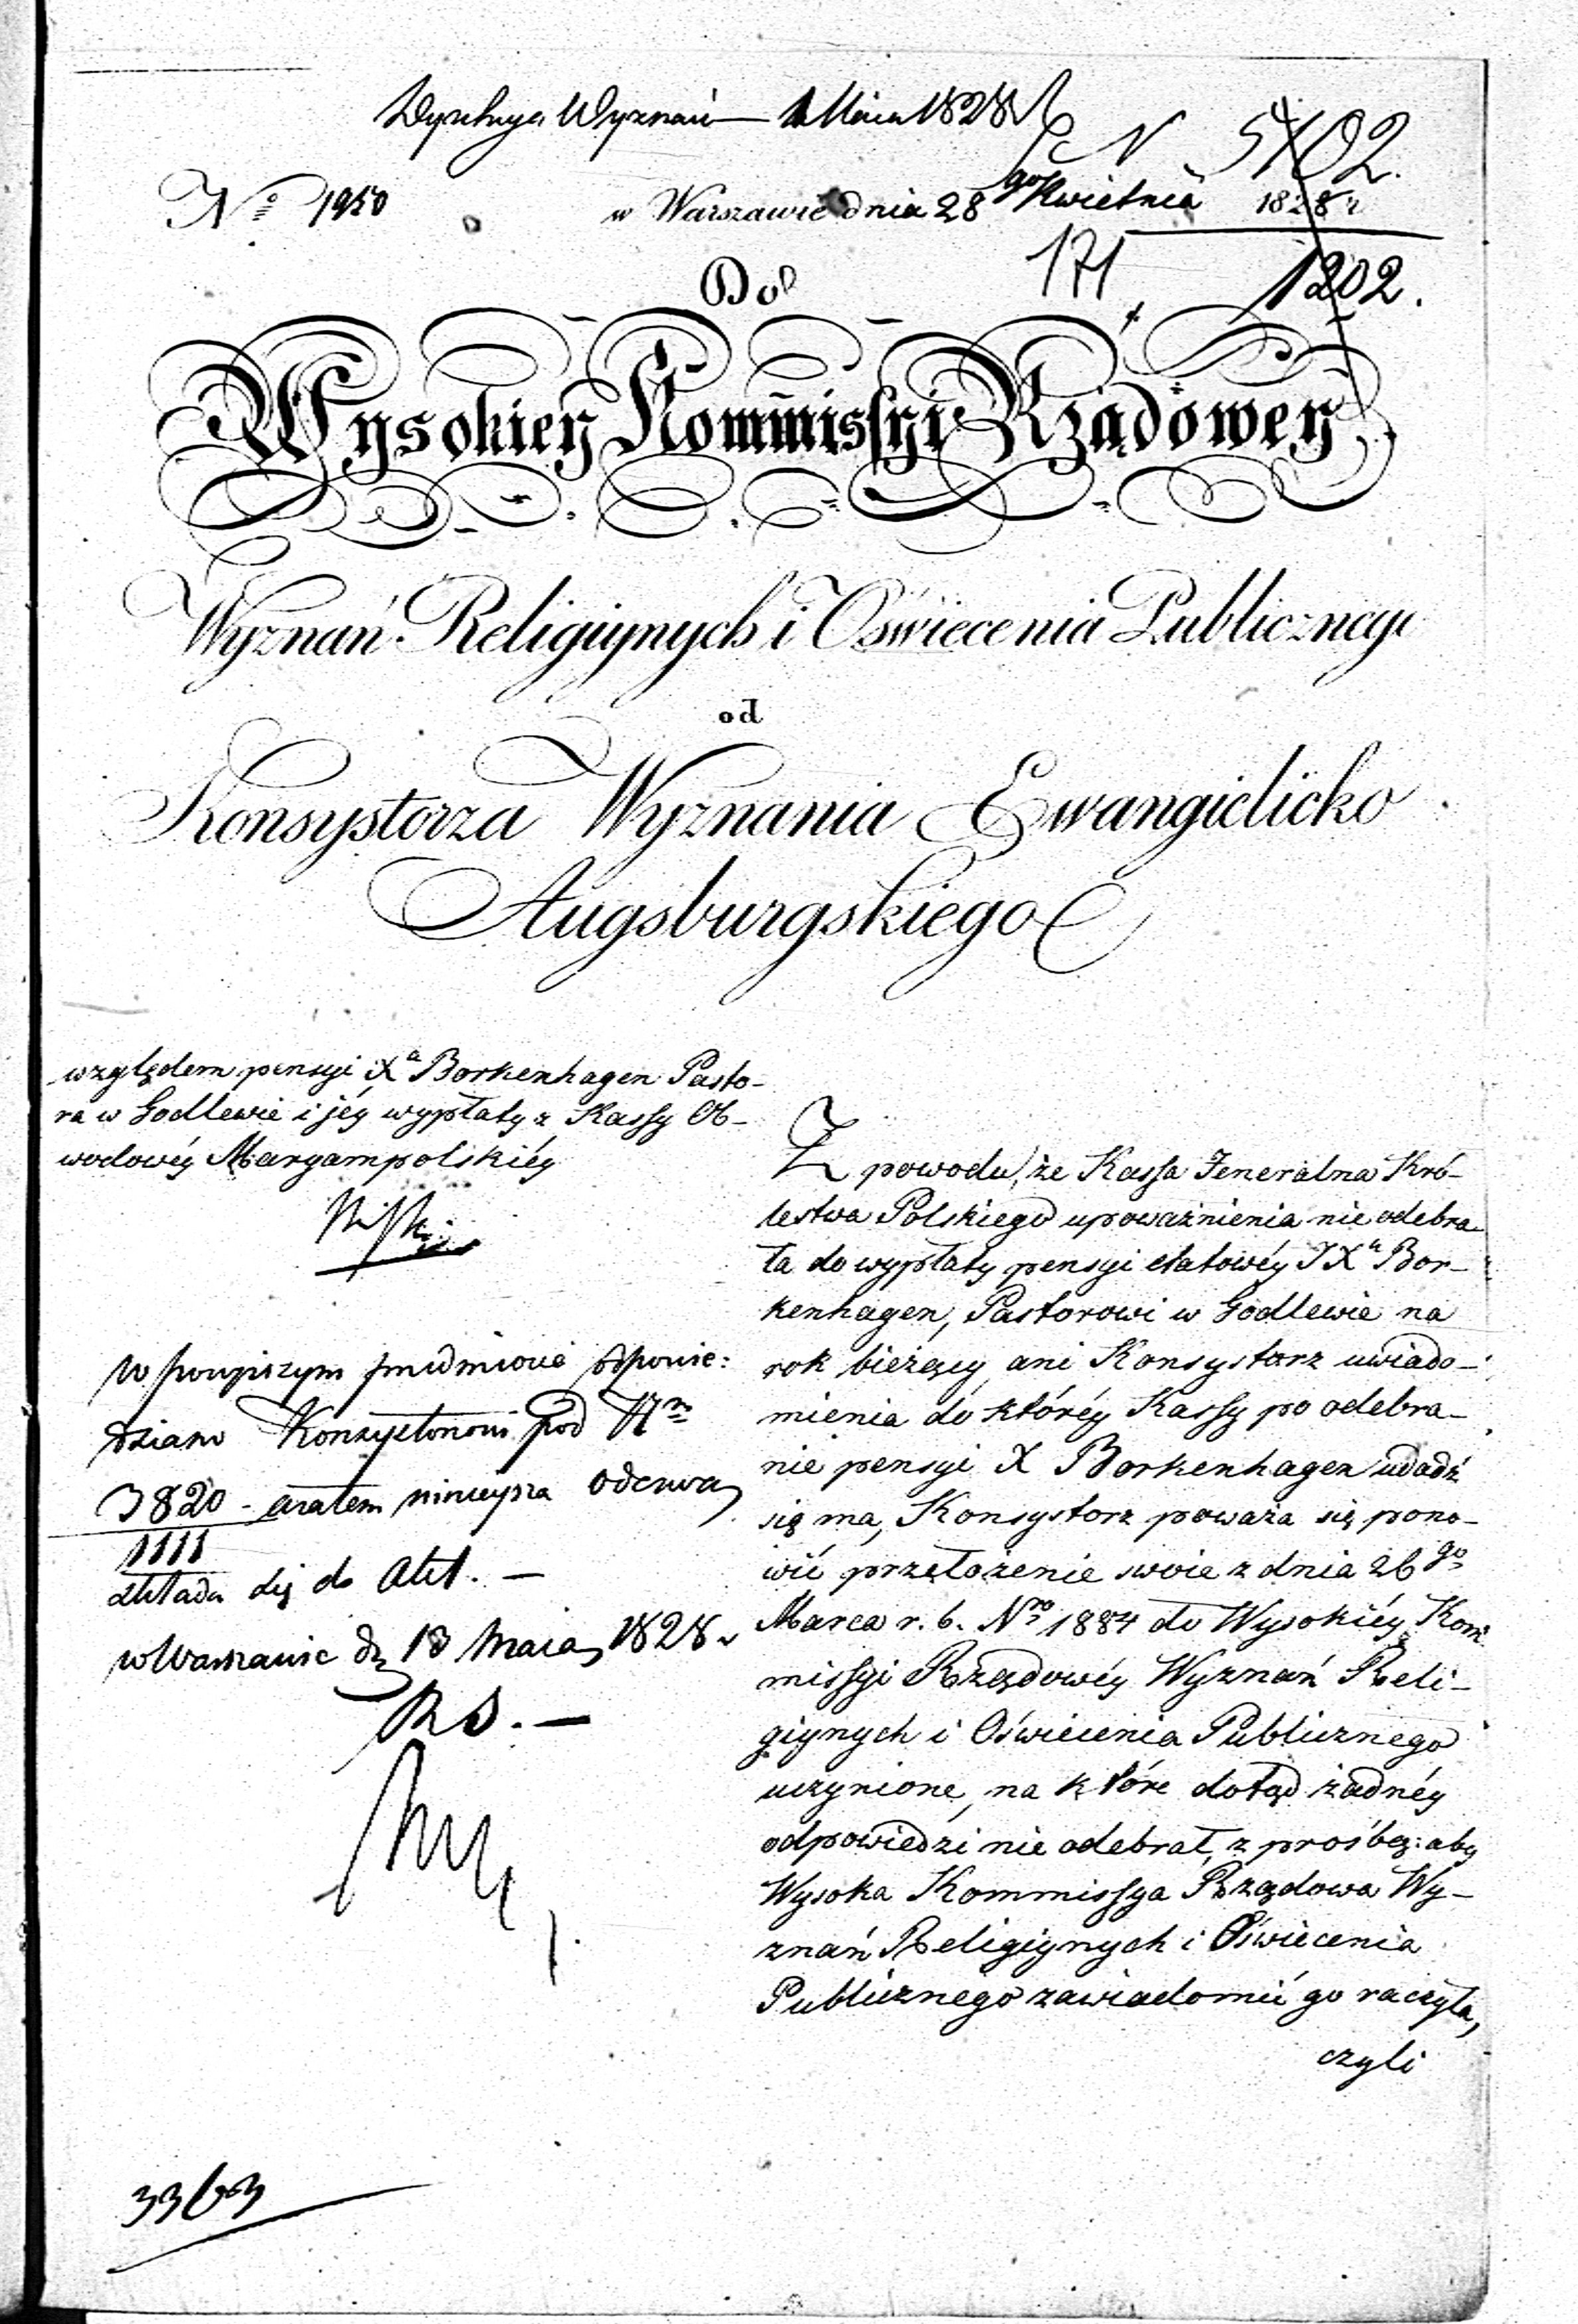 Dyrekcya Wyznań — 1 Maia 1828
N 5702.
No 1950
w Warszawie dnia 28go Kwietnia 1828 r
171
1202.
Do
Wysokiey Kommissyi Rządowey
Wyznań Religiynych i Oświecenia Publicznego
od
Konsystorza Wyznania Ewangielicko
Augsburgskiego
względem pensyi Xa Borkenhagen Pasto-
ra w Godlewie i jéy wypłaty z Kassy Ob-
wodowéy Maryampolskiéy
W powyższym przedmiocie odpowie:
dziano Konsystorzowi pod Nrm
3820
1111
zatem ninieysza odezwa
składa się do Akt. —
w Warszawie d. 13 Maia 1828 r
Z powodu, że Kassa Jeneralna Kró-
lestwa Polskiego upoważnienia nie odebra-
ła do wypłaty pensyi etatowéy JXu Bor-
kenhagen, Pastorowi w Godlewie na
rok bieżący, ani Konsystorz uwiado-
mienia do któréy Kassy po odebra-
nie pensyi X Borkenhagen udadź
się ma, Konsystorz poważa się pono-
wić przełożenie swoie z dnia 26go
Marca r. b. Nro 1884 do Wysokiéy Kom-
missyi Rządowéy Wyznań Reli-
giynych i Oświecenia Publicznego
uczynione, na które dotąd żadnéy
odpowiedzi nie odebrał, z prośbą: aby
Wysoka Kommissya Rządowa Wy-
znań Religiynych i Oświecenia
Publicznego zawiadomić go raczyła,
czyli
3363